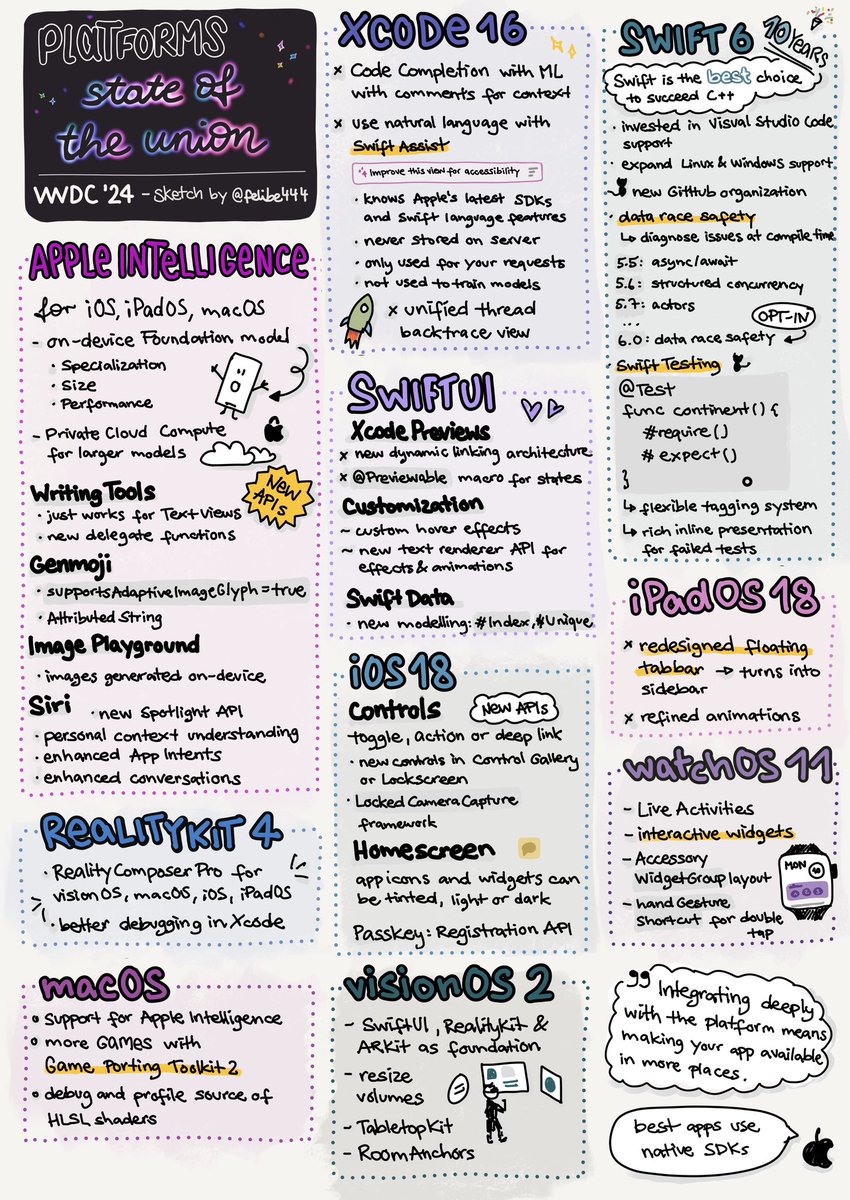 PLATFORMS
state of
the union
WWDC '24 - Sketch by @felibe444
APPLE INTELLIGENCE
for iOS, iPadOS, macOS
- on-device Foundation model
· Specialization
· Size
· Performance
- Private Cloud Compute
for larger models
NEW
APIs
Writing Tools
· just works for TextViews
· new delegate functions
Genmoji
· supportsAdaptiveImageGlyph = true
· Attributed String
Image Playground
· images generated on-device
Siri · new Spotlight API
· personal context understanding
· enhanced App Intents
· enhanced conversations
REALITYKIT 4
· RealityComposer Pro for
visionOS, macOS, iOS, iPadOS
· better debugging in Xcode
macOS
• support for Apple Intelligence
• more GAMES with
Game Porting Toolkit 2
• debug and profile source of
HLSL shaders
XCODE 16
x Code Completion with ML
with comments for context
x use natural language with
Swift Assist
Improve this view for accessibility
· knows Apple's latest SDKs
and Swift language features
· never stored on server
· only used for your requests
· not used to train models
x unified thread
backtrace view
SWIFTUI
Xcode Previews
x new dynamic linking architecture
x @Previewable macro for states
Customization
~ custom hover effects
~ new text renderer API for
effects & animations
Swift Data
· new modelling: #Index, #Unique
iOS 18
Controls
New APIs
toggle, action or deep link
· new controls in Control Gallery
or Lockscreen
· Locked Camera Capture
framework
Homescreen
app icons and widgets can
be tinted, light or dark
Passkey: Registration API
visionOS 2
- SwiftUI, RealityKit &
ARKit as foundation
- resize
volumes
- TabletopKit
- RoomAnchors
SWIFT 6
10 YEARS
Swift is the best choice
to succeed C++
· invested in Visual Studio Code
support
· expand Linux & Windows support
new GitHub organization
· data race safety
↳ diagnose issues at compile time
5.5: async/await
5.6: structured concurrency
5.7: actors
...
OPT-IN
6.0: data race safety
Swift Testing
@Test
func continent() {
#require()
# expect()
}
↳ flexible tagging system
↳ rich inline presentation
for failed tests
iPadOS 18
x redesigned floating
tabbar → turns into
sidebar
x refined animations
watchOS 11
- Live Activities
- interactive widgets
- Accessory
WidgetGroup layout
- hand Gesture
Shortcut for double
tap
MON
" Integrating deeply
with the platform means
making your app available
in more places.
best apps use
native SDKs